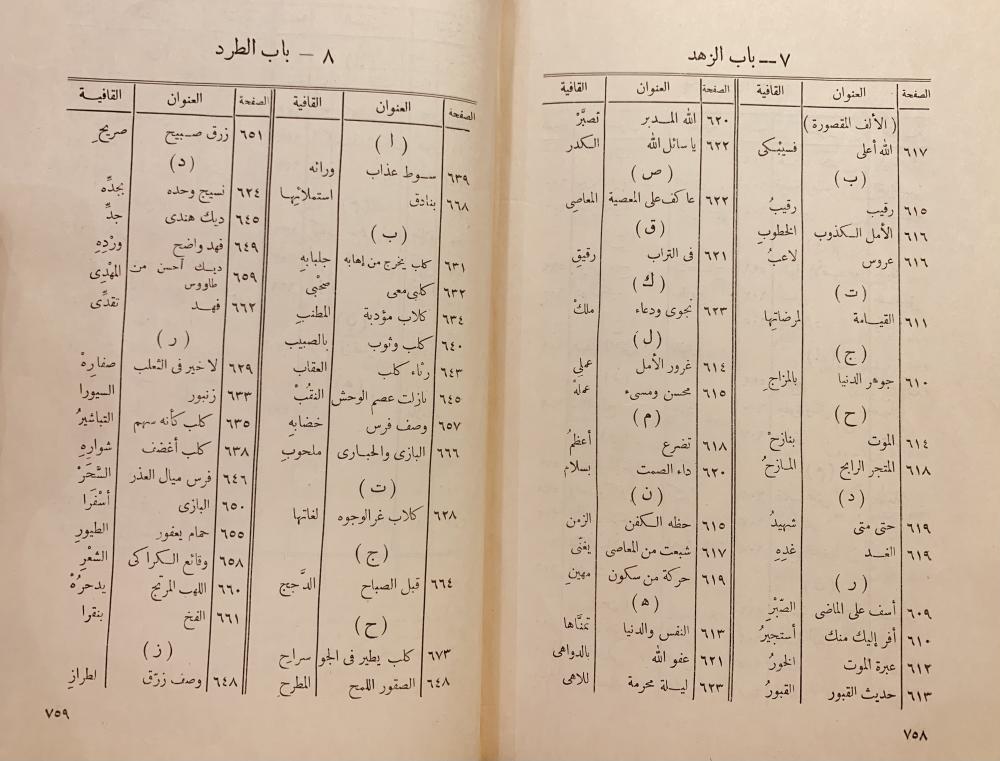 ٧ — باب الزهد
الصفحة العنوان القافية
( الألف المقصورة )
٦١٧ الله أعلى فسيبْكى
( ب )
٦١٥ رقيب رقيبُ
٦١٦ الأمل الكذوب الخطوبِ
٦١٦ عروس لاعبُ
( ت )
٦١١ القيامة لمرضاتِها
( ج )
٦١٠ جوهر الدنيا بالمزاجِ
( ح )
٦١٤ الموت بنازحْ
٦١٨ المتجر الرابح المازحُ
( د )
٦١٩ حتى متى شهيدُ
٦١٩ الغد غدِهِ
( ر )
٦٠٩ أسف على الماضى الصّبْرِ
٦١٠ أفر إليك منك أستجيرُ
٦١٢ عبرة الموت الخورُ
٦١٣ حديث القبور القبورُ
الصفحة العنوان القافية
٦٢٠ الله المدبر تصبَّرْ
٦٢٢ يا سائل الله الكدر
( ص )
٦٢٢ عاكف على المعصية المعاصِى
( ق )
٦٢١ فى التراب رقيقِ
( ك )
٦٢٣ نجوى ودعاء ملكْ
( ل )
٦١٤ غرور الأمل عملِى
٦١٥ محسن ومسىء عملهْ
( م )
٦١٨ تضرع أعظمُ
٦٢٠ داء الصمت بسلام
( ن )
٦١٥ حظه الكفن الزمن
٦١٧ شبعت من المعاصى يغنّى
٦١٩ حركة من سكون مهينِ
( ه )
٦١٣ النفس والدنيا تمنَّاها
٦٢١ عفو الله بالدواهى
٦٢٣ ليلة محرمة للاهى
٧٥٨
٨ — باب الطرد
الصفحة العنوان القافية
( ا )
٦٣٩ سوط عذاب ورائه
٦٦٨ بنادق استملائِها
( ب )
٦٣١ كلب يخرج من إهابه جلبابهِ
٦٣٢ كلبى معى صحْبى
٦٣٤ كلاب مؤدبة المطنبِ
٦٤٠ كلب وثوب بالصبيب
٦٤٣ رثاء كلب العقاب
٦٤٥ نازلت عصم الوحش النقُبْ
٦٥٧ وصف فرس خضابهِ
٦٦٦ البازى والحبارى ملحوبِ
( ت )
٦٢٨ كلاب غر الوجوه لغاتها
( ج )
٦٦٤ قبل الصباح الدَّجج
( ح )
٦٧٣ كلب يطير فى الجو سراحِ
٦٤٨ الصقور اللمح المطرحِ
الصفحة العنوان القافية
٦٥١ زرق صبيح صريحِ
( د )
٦٢٤ نسيج وحده بجدِّه
٦٤٥ ديك هندى جدِّ
٦٤٩ فهد واضح ورْدِهِ
٦٥٩ ديك أحسن من طاووس المهْدِى
٦٦٢ فهد تقدِّى
( ر )
٦٢٩ لا خير فى الثعلب صفارِهْ
٦٣٣ زنبور السيورا
٦٣٥ كلب كأنه سهم التباشيرُ
٦٣٨ كلب أغضف شوارِهِ
٦٤٦ فرس ميال العذر السَّحَرْ
٦٥٠ البازى أسْفَرا
٦٥٥ حمام يعفور الطيورِ
٦٥٨ وقائع الكراكى الشعْرِ
٦٦٠ اللهب المرتج يدحرُهْ
٦٦١ الفخ بنقرا
( ز )
٦٤٨ وصف زرّق لطرازِ
٧٥٩